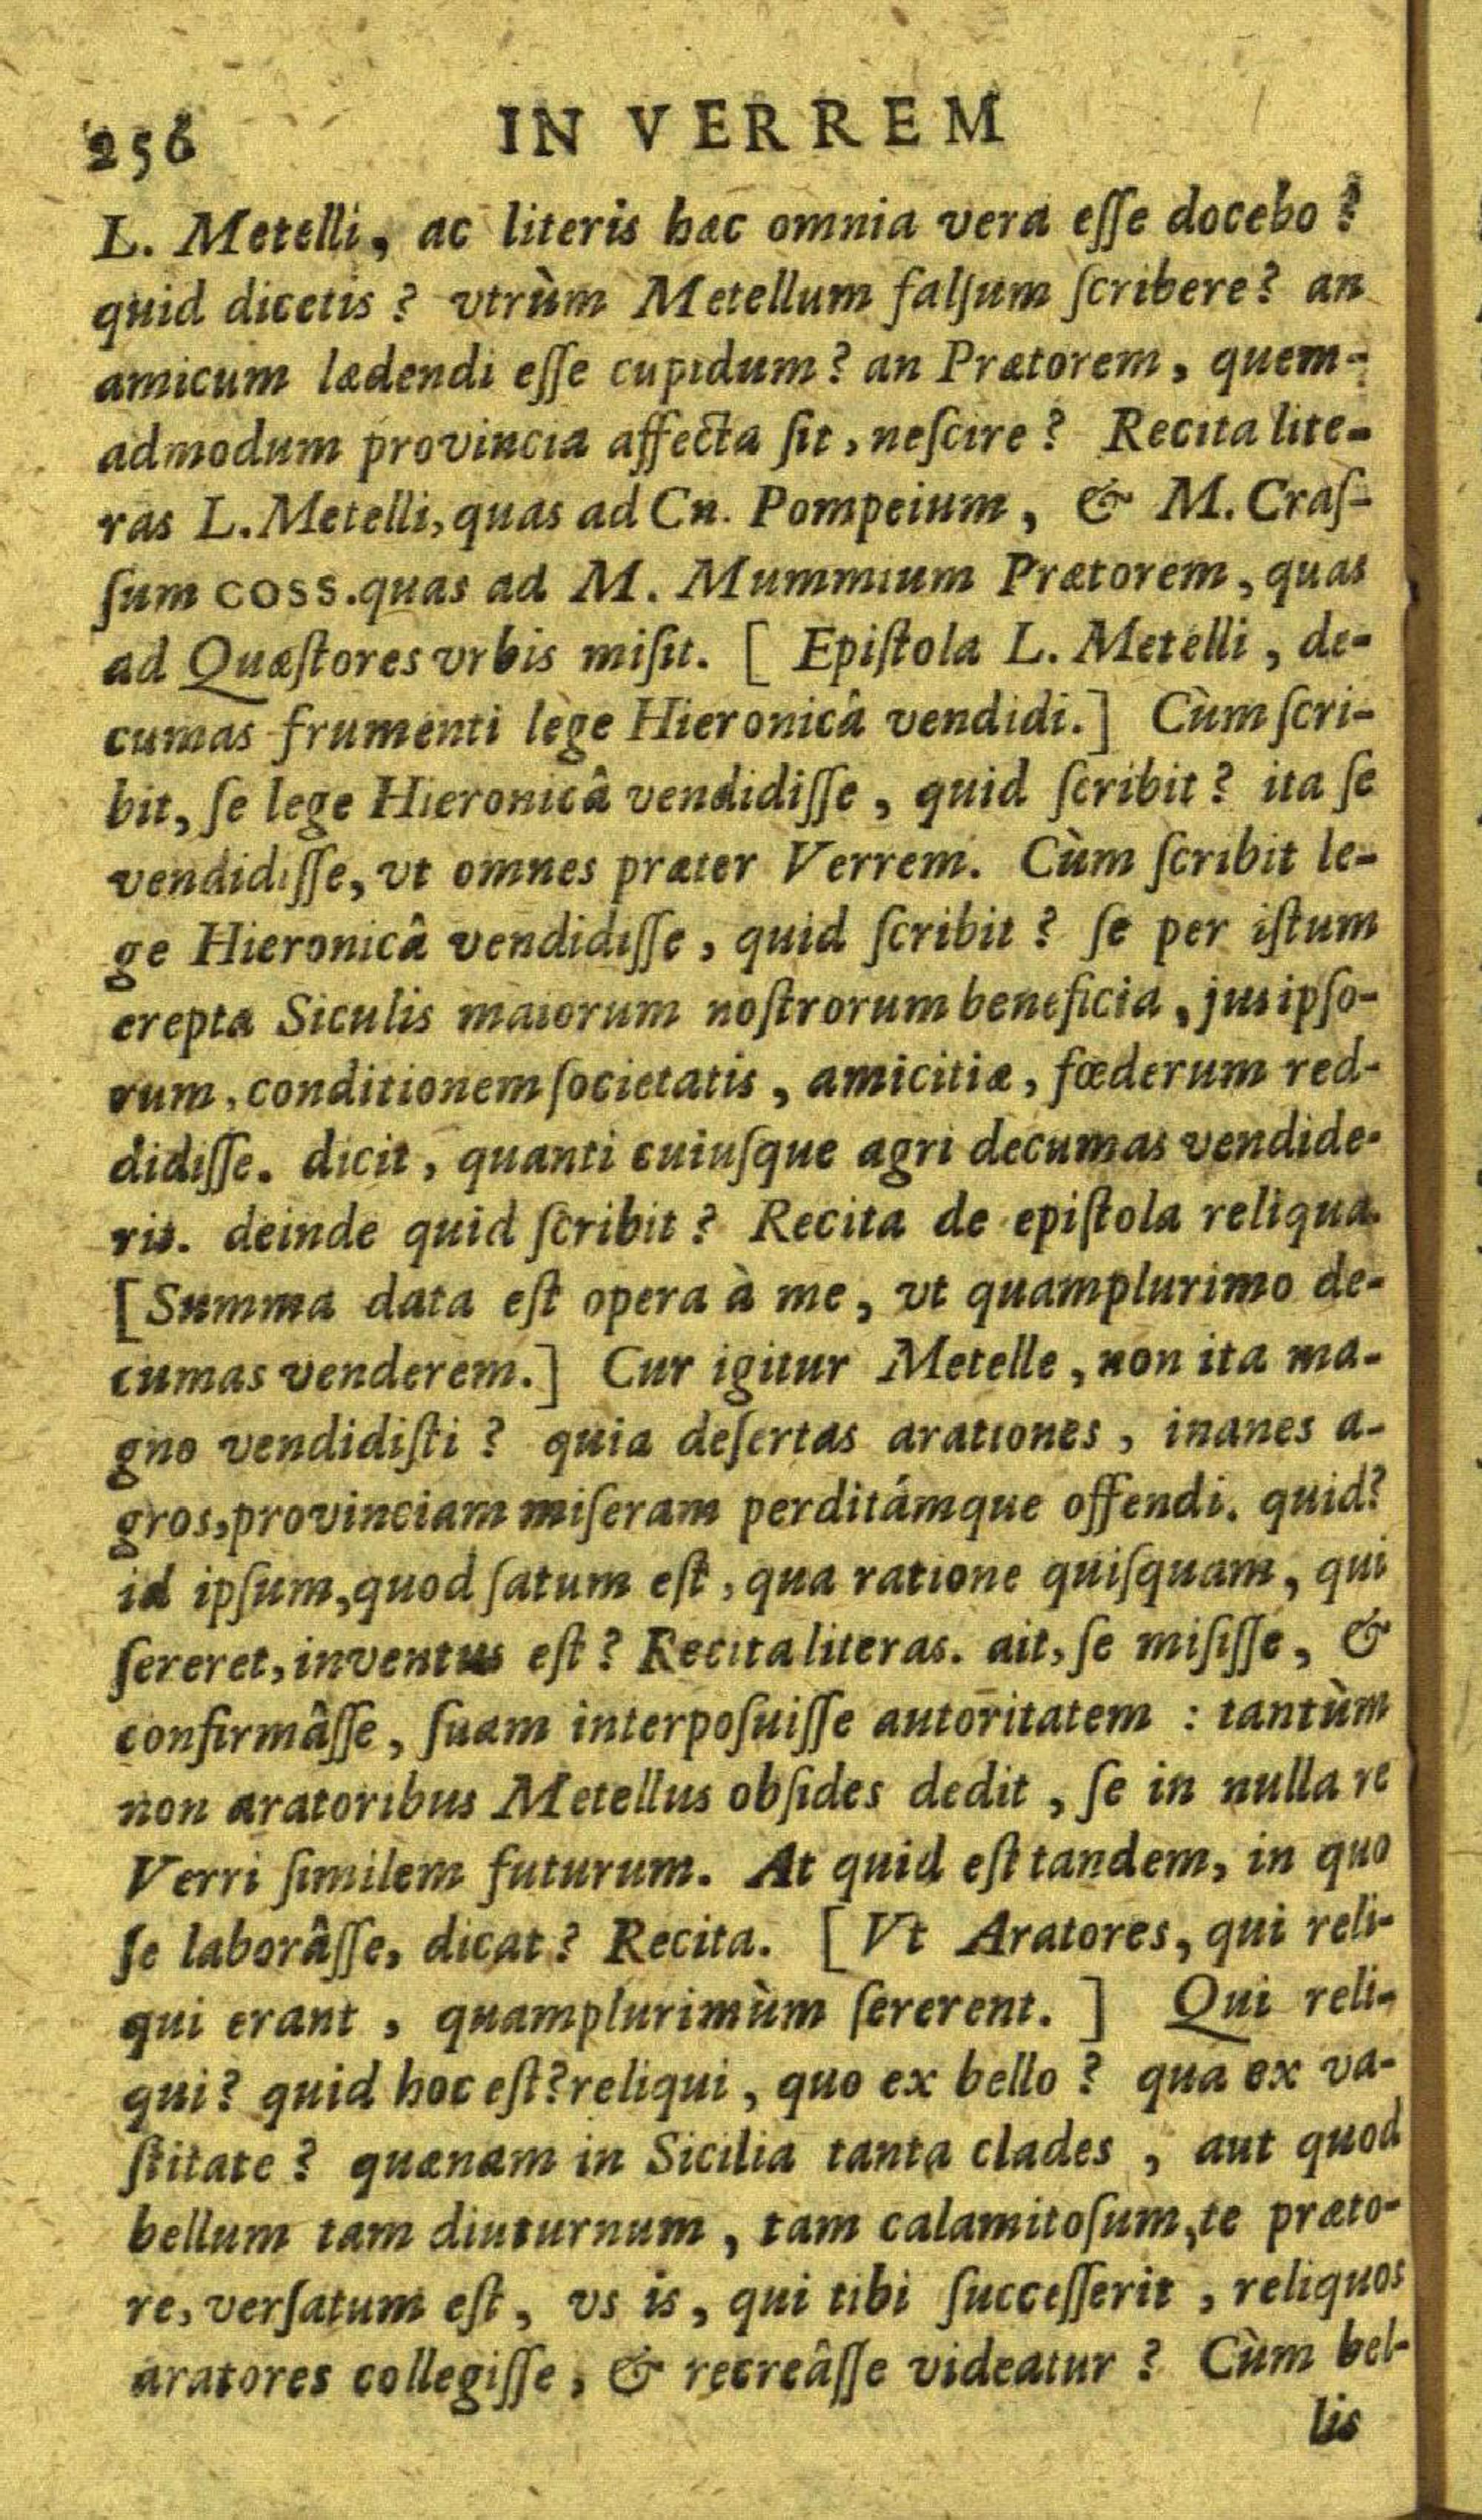 256 IN VERREM
L. Metelli, ac literis hæc omnia vera eſſe docebo?
quid dicetis? vtrùm Metellum falſum ſcribere? an
amicum lædendi eſſe cupidum? an Prætorem, quem-
admodum provincia affecta ſit, neſcire? Recita lite-
ras L. Metelli, quas ad Cn. Pompeium, & M. Craſ-
ſum COSS. quas ad M. Mummium Prætorem, quas
ad Quæſtores vrbis miſit. [ Epiſtola L. Metelli, de-
cumas frumenti lege Hieronicâ vendidi.] Cùm ſcri-
bit, ſe lege Hieronicâ vendidiſſe, quid ſcribit? ita ſe
vendidiſſe, vt omnes præter Verrem. Cùm ſcribit le-
ge Hieronicâ vendidiſſe, quid ſcribit? ſe per iſtum
erepta Siculis maiorum noſtrorum beneficia, jus ipſo-
rum, conditionem ſocietatis, amicitiæ, fœderum red-
didiſſe. dicit, quanti cuiuſque agri decumas vendide-
rit. deinde quid ſcribit? Recita de epiſtola reliqua.
[Summa data eſt opera à me, vt quamplurimo de-
cumas venderem.] Cur igitur Metelle, non ita ma-
gno vendidiſti? quia deſertas arationes, inanes a-
gros, provinciam miſeram perditámque offendi. quid?
id ipſum, quod ſatum eſt, qua ratione quiſquam, qui
ſereret, inventus eſt? Recita literas. ait, ſe miſiſſe, &
confirmâſſe, ſuam interpoſuiſſe autoritatem: tantùm
non aratoribus Metellus obſides dedit, ſe in nulla re
Verri ſimilem futurum. At quid eſt tandem, in quo
ſe laborâſſe, dicat? Recita. [Vt Aratores, qui reli-
qui erant, quamplurimùm ſererent.] Qui reli-
qui? quid hoc eſt? reliqui, quo ex bello? qua ex va-
ſtitate? quænam in Sicilia tanta clades, aut quod
bellum tam diuturnum, tam calamitoſum, te præto-
re, verſatum eſt, vs is, qui tibi ſucceſſerit, reliquos
aratores collegiſſe, & recreâſſe videatur? Cùm bel-
lis